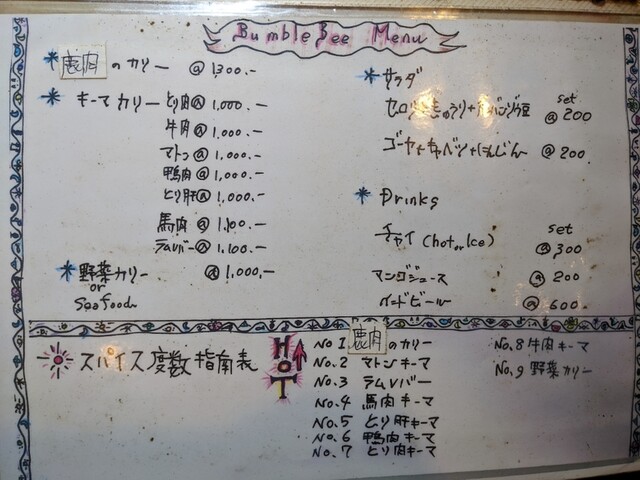 Bumble Bee Menu
* 鹿肉のカリー @ 1,300.-
* キーマカリー とり肉 @ 1,000.-
牛肉 @ 1,000.-
マトン @ 1,000.-
鴨肉 @ 1,000.-
とり肝 @ 1,000.-
馬肉 @ 1,100.-
ラムレバー @ 1,100.-
* 野菜カリー @ 1,000.-
or
Seafood
* サラダ
セロリ+きゅうり+ガルバンゾ豆 set @ 200
ゴーヤ+キャベツ+にんじん @ 200
* Drinks
チャイ (hot or Ice) set @ 300
マンゴジュース @ 200
ビール @ 600
スパイス度数指南表
HOT
No 1 鹿肉のカリー
No. 2 マトンキーマ
No. 3 ラムレバー
No. 4 馬肉キーマ
No. 5 とり肝キーマ
No. 6 鴨肉キーマ
No. 7 とり肉キーマ
No. 8 牛肉キーマ
No. 9 野菜カリー